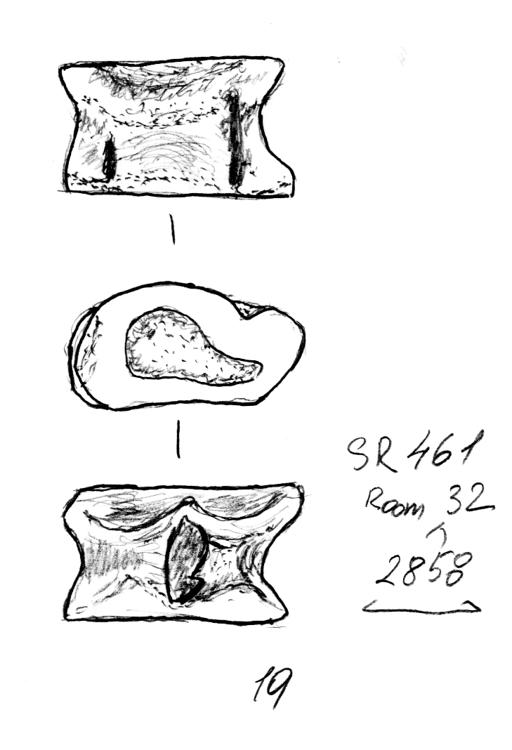 SR 461
Room 32
2858
19